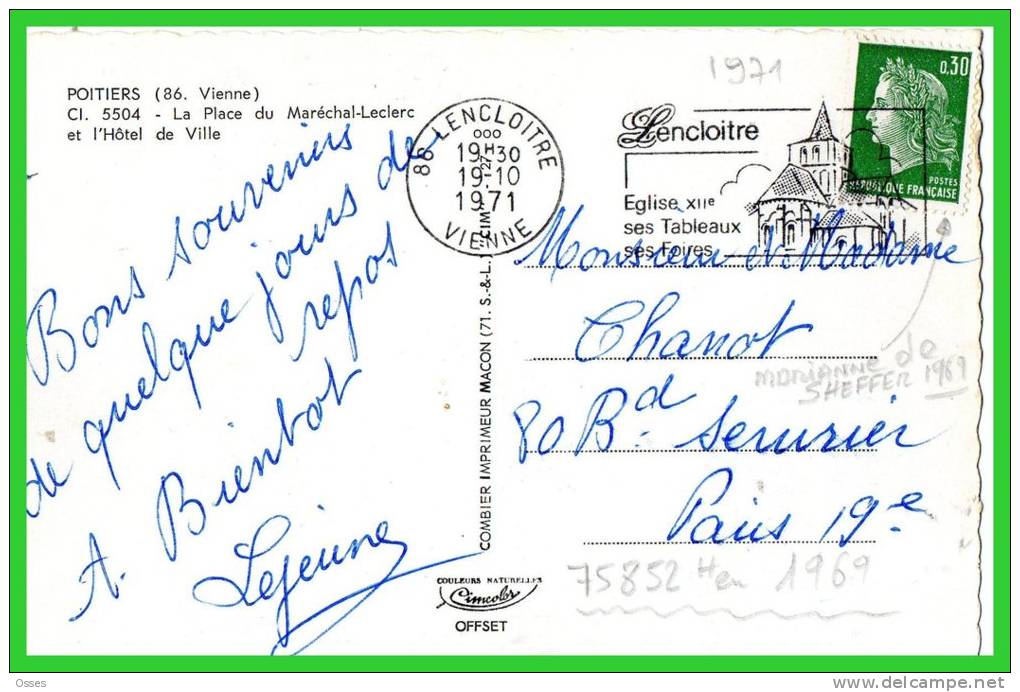 POITIERS (86. Vienne)
Cl. 5504 - La Place du Maréchal-Leclerc
et l'Hôtel de Ville
Bons souvenirs
de quelque jours de
repos
A. Bientot
Lejeune
COMBIER IMPRIMEUR MACON (71. S.-&-L.) "CIM"
COULEURS NATURELLES
Cimcolor
OFFSET
86 LENCLOITRE
19H30
19-10
1971
VIENNE
1971
Lencloitre
Eglise XIIe
ses Tableaux
ses Foires
0,30
POSTES
REPUBLIQUE FRANÇAISE
Monsieur et Madame
Chanot
80 Bd. Serurier
Paris 19e
MARIANNE de
SHEFFER 1969
75852 Hen 1969
Osses
www.delcampe.net